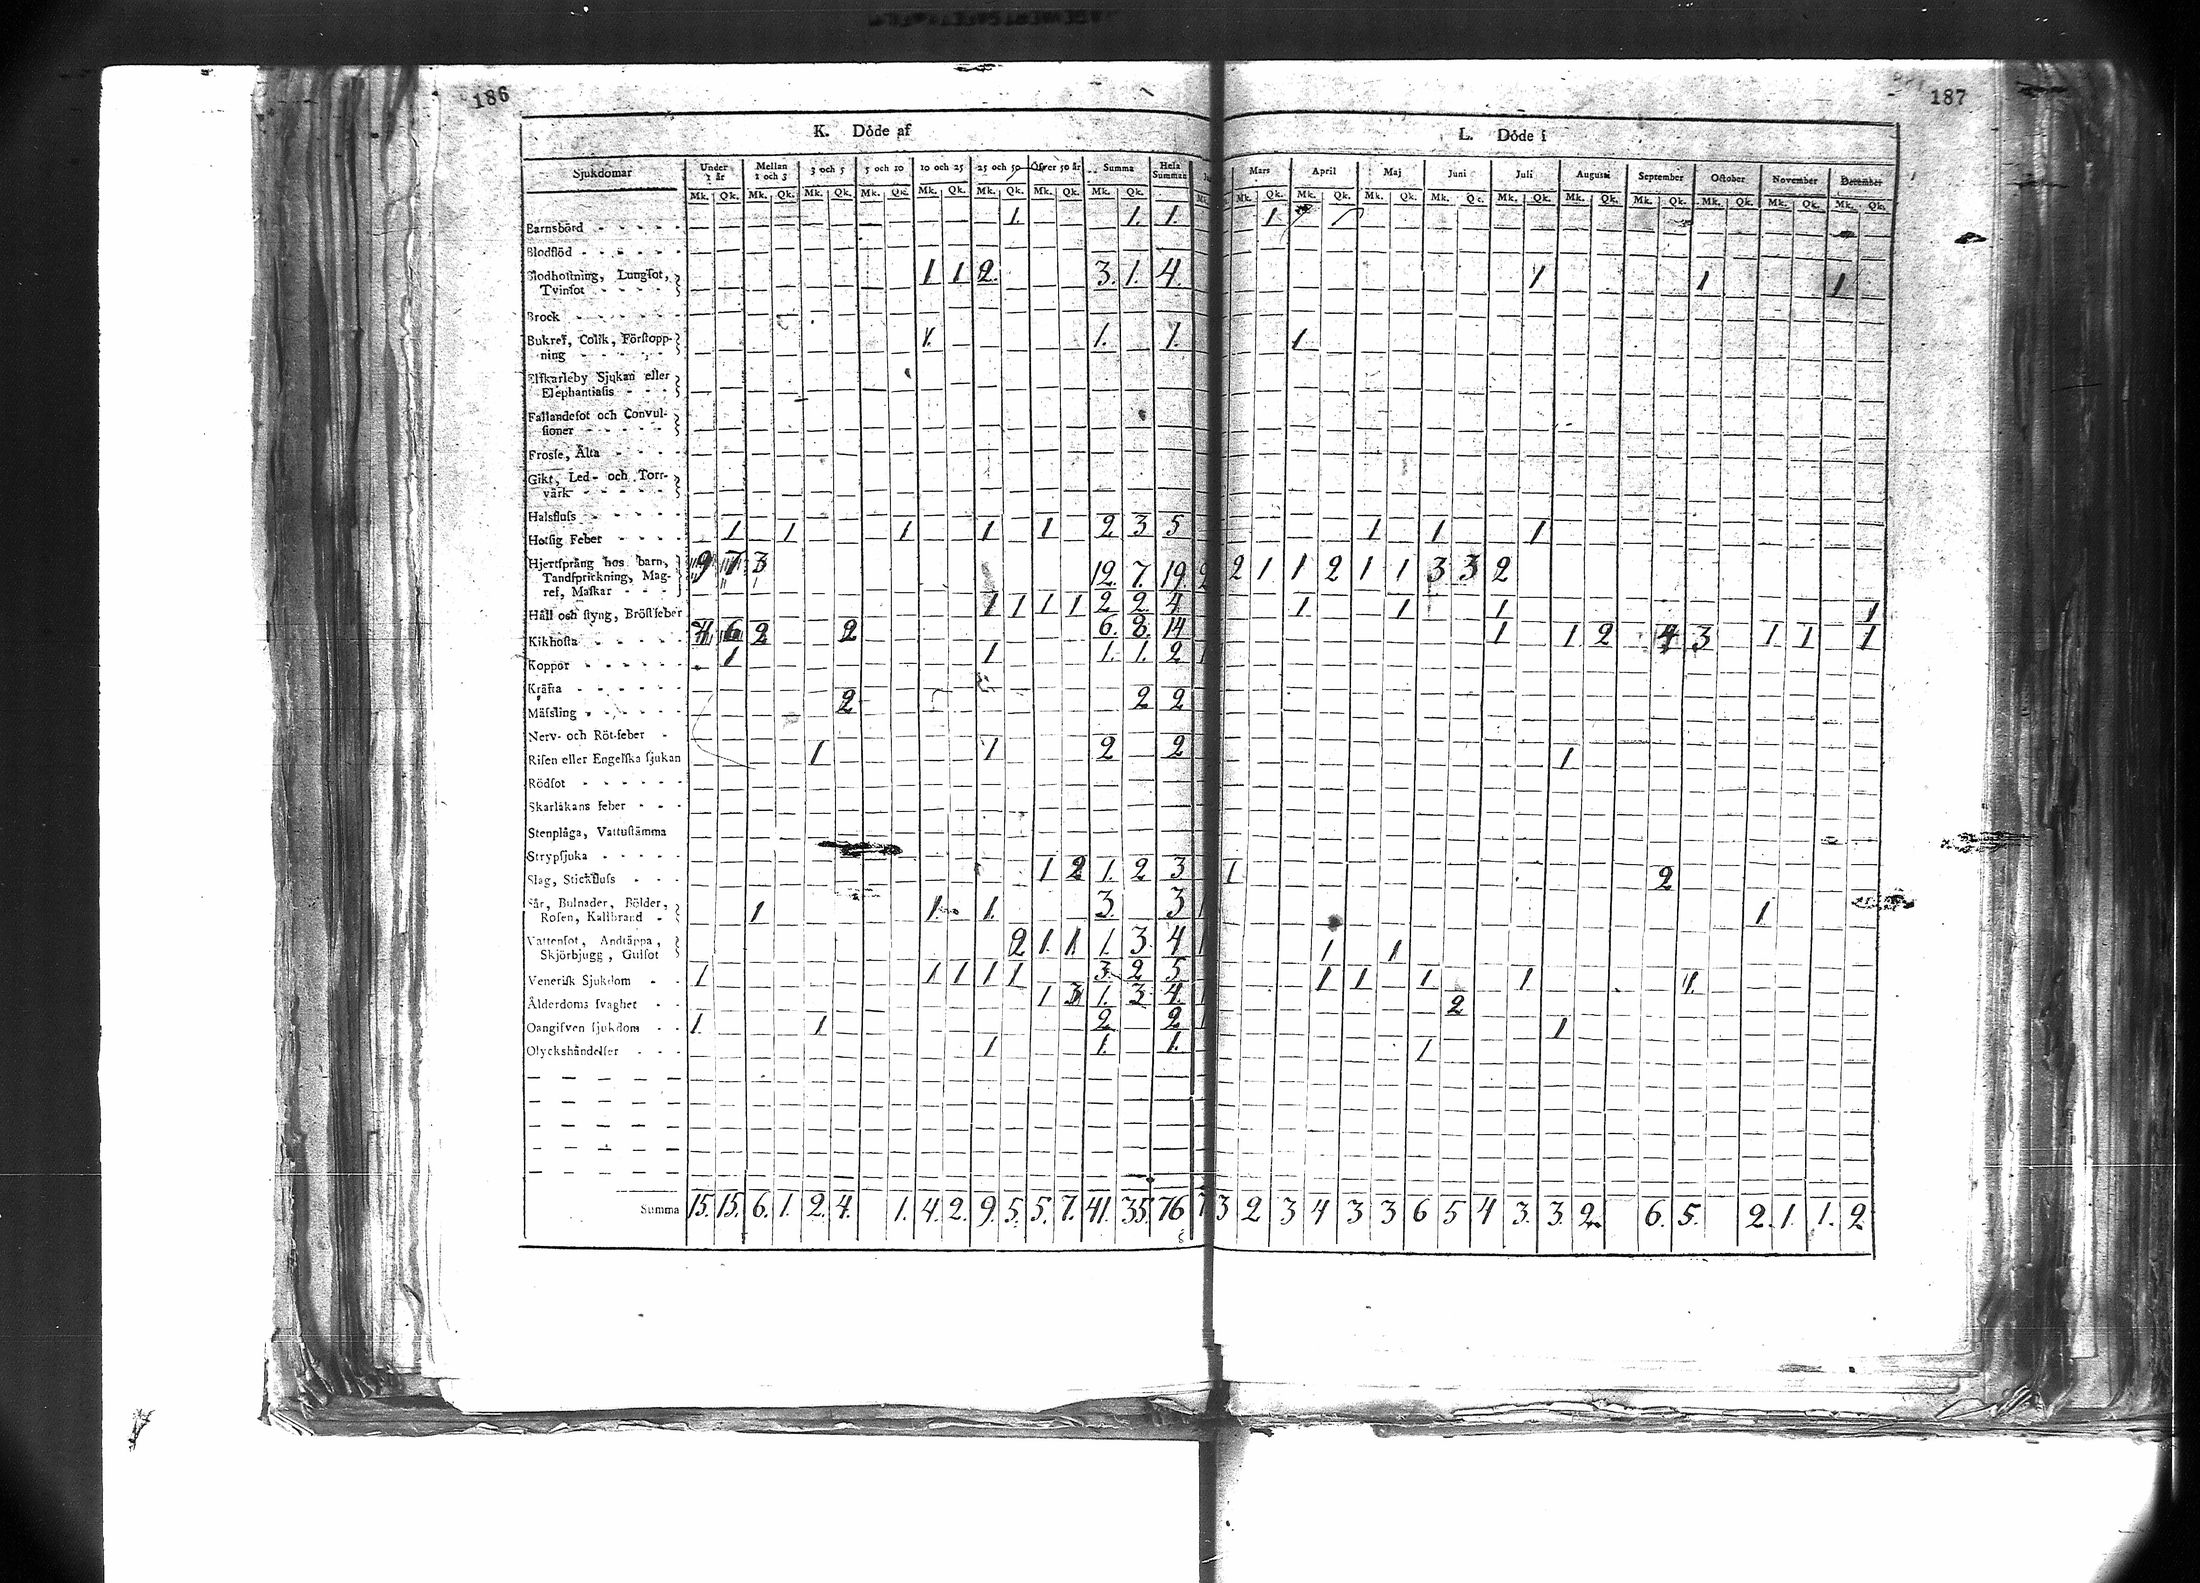 186
187
K. Döde af
L. Döde i
Sjukdomar Under 1 år Mellan 1 och 3 3 och 5 5 och 10 10 och 25 25 och 50 Öfver 50 år Summa Hela Summan
Mars April Maj Juni Juli Augusti September October November December
Mk. Qk. Mk. Qk. Mk. Qk. Mk. Qk. Mk. Qk. Mk. Qk. Mk. Qk. Mk. Qk.
Mk. Qk. Mk. Qk. Mk. Qk. Mk. Qk. Mk. Qk. Mk. Qk. Mk. Qk. Mk. Qk. Mk. Qk. Mk. Qk.
Barnsbörd 1. 1. 1. 1
Blodflöd
Blodhostning, Lungsot, 1 1 2. 3. 1. 4. 1 1 1
Tvinsot
Brock
Bukref, Colik, Förstopp- 1. 1. 1. 1
ning
Elfkarleby Sjukan eller
Elephantiasis
Fallandesot och Convul-
sioner
Frosse, Älta
Gikt, Led- och Torr-
värk
Halsfluss
Hetsig Feber 1 1 1 1 1 2 3 5 1 1 1
Hjertsprång hos barn, 9 7 3
Tandsprickning, Mag- 12. 7. 19 2 2 1 1 2 1 1 3 3 2
ref, Maskar
Håll och styng, Bröstfeber 1 1 1 1 2 2 4 1 1 1 1
Kikhosta 4 6 2 2 6. 8. 14 1 1 2 4 3 1 1 1
Koppor 1 1 1. 1. 2 1
Kräfta
Mässling 2 2 2
Nerv- och Röt-feber
Risen eller Engelska sjukan 1 1 2 2 1
Rödsot
Skarlakans feber
Stenplåga, Vattustämma
Strypsjuka
Slag, Stickfluss 1 2 1. 2 3 1 2
Sår, Bulnader, Bölder, 1 1. 1. 3. 3 1 1
Rosen, Kallbrand
Vattensot, Andtäppa, 2 1. 1 1. 3. 4 1 1 1
Skjörbjugg, Gulsot
Venerisk Sjukdom 1 1 1 1 1 3. 2 5 1 1 1 1 1.
Ålderdoms svaghet 1 3 1. 3 4. 1 2
Oangifven sjukdom 1. 1 2 2 1 1
Olyckshändelser 1 1. 1. 1
Summa 15. 15. 6. 1. 2. 4. 1. 4. 2. 9. 5. 5. 7. 41. 35. 76 7. 3 2 3 4 3 3 6 5 4 3. 3. 2. 6. 5. 2. 1. 1. 2